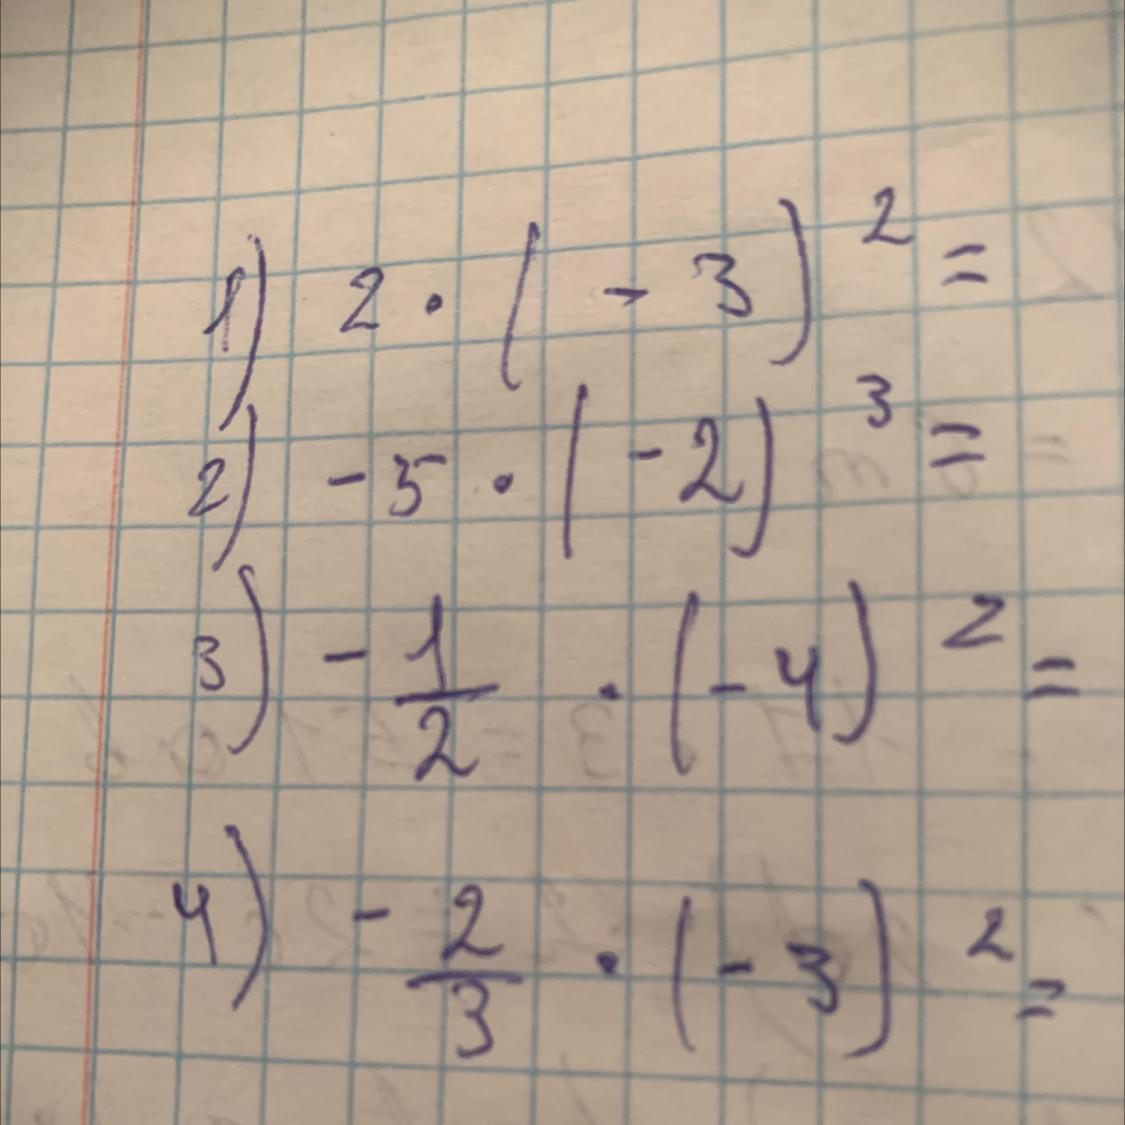 1) 2 · (-3)² =
2) -5 · (-2)³ =
3) -1/2 · (-4)² =
4) -2/3 · (-3)² =